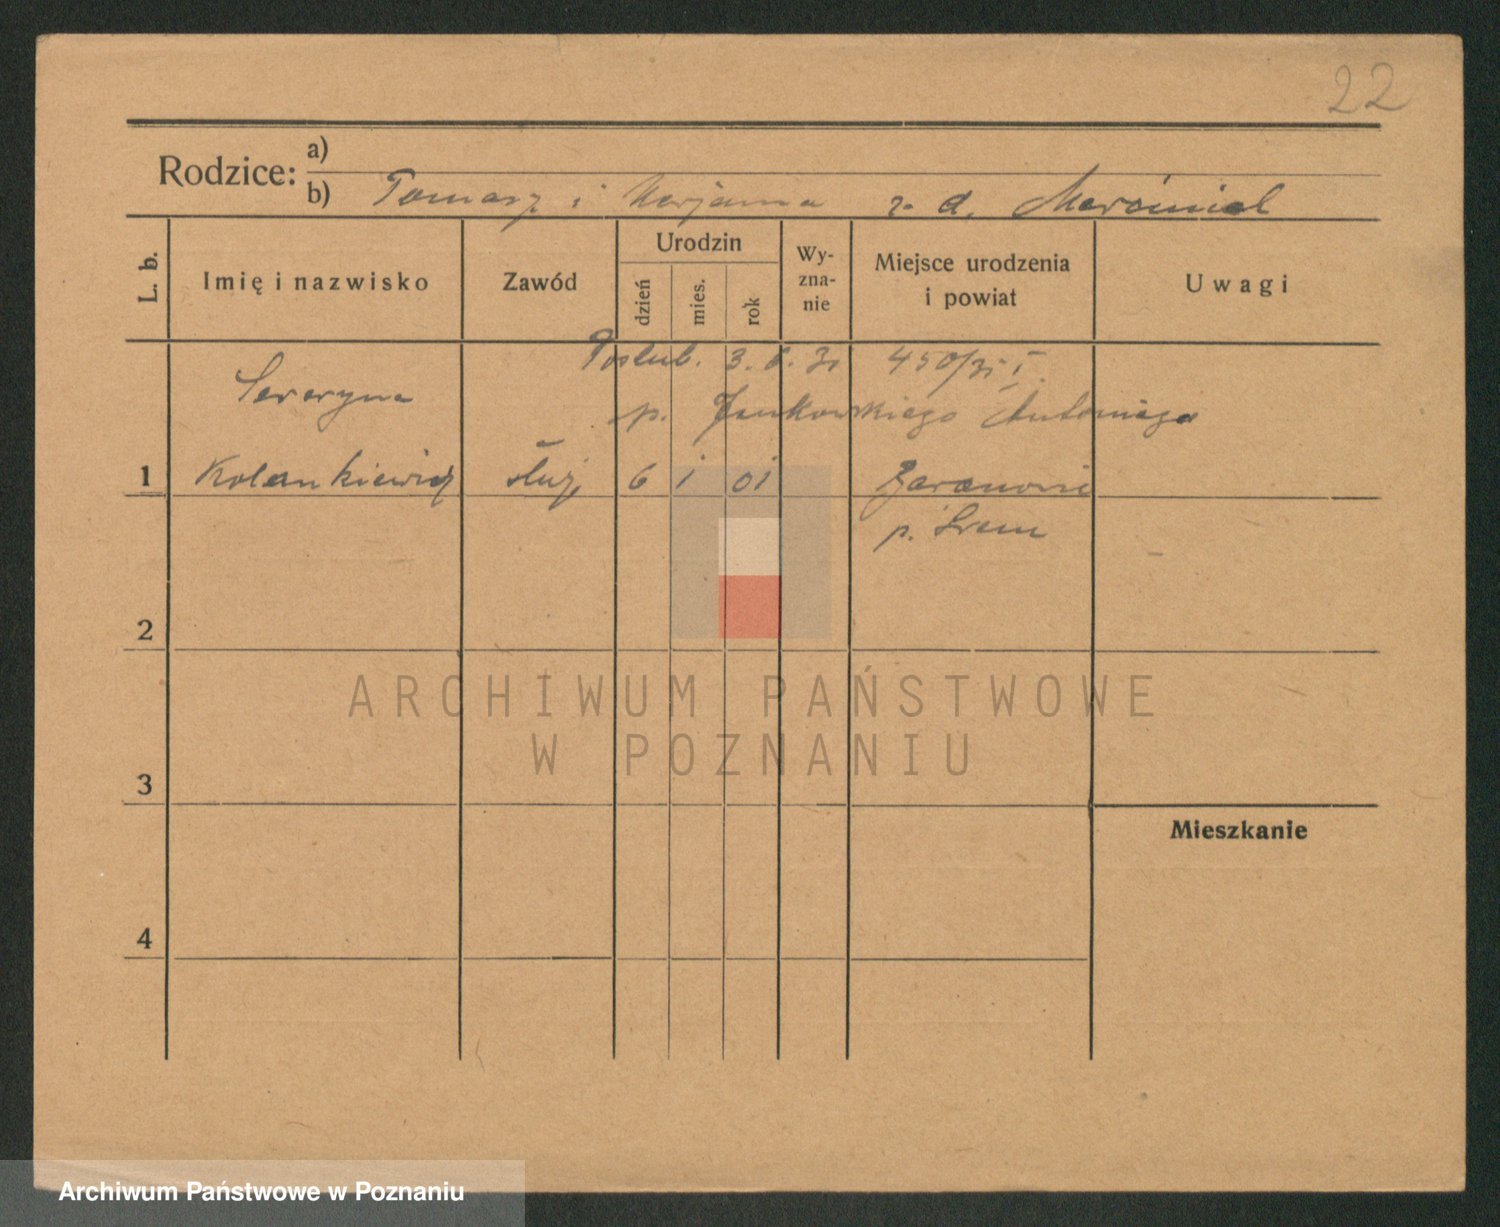 22
Rodzice: a)
b) Tomasz i Marjanna z d. Marciniak
L. b.
Imię i nazwisko
Zawód
Urodzin
dzień
mies.
rok
Wy-
zna-
nie
Miejsce urodzenia
i powiat
Uwagi
Poślub. 3. 6. 31 450/31 I
Seweryna
p. Jankowskiego Antoniego
1 Kolankiewicz służ. 6 1 01
p. Śrem
2
ARCHIWUM PAŃSTWOWE
W POZNANIU
3
Mieszkanie
4
Archiwum Państwowe w Poznaniu